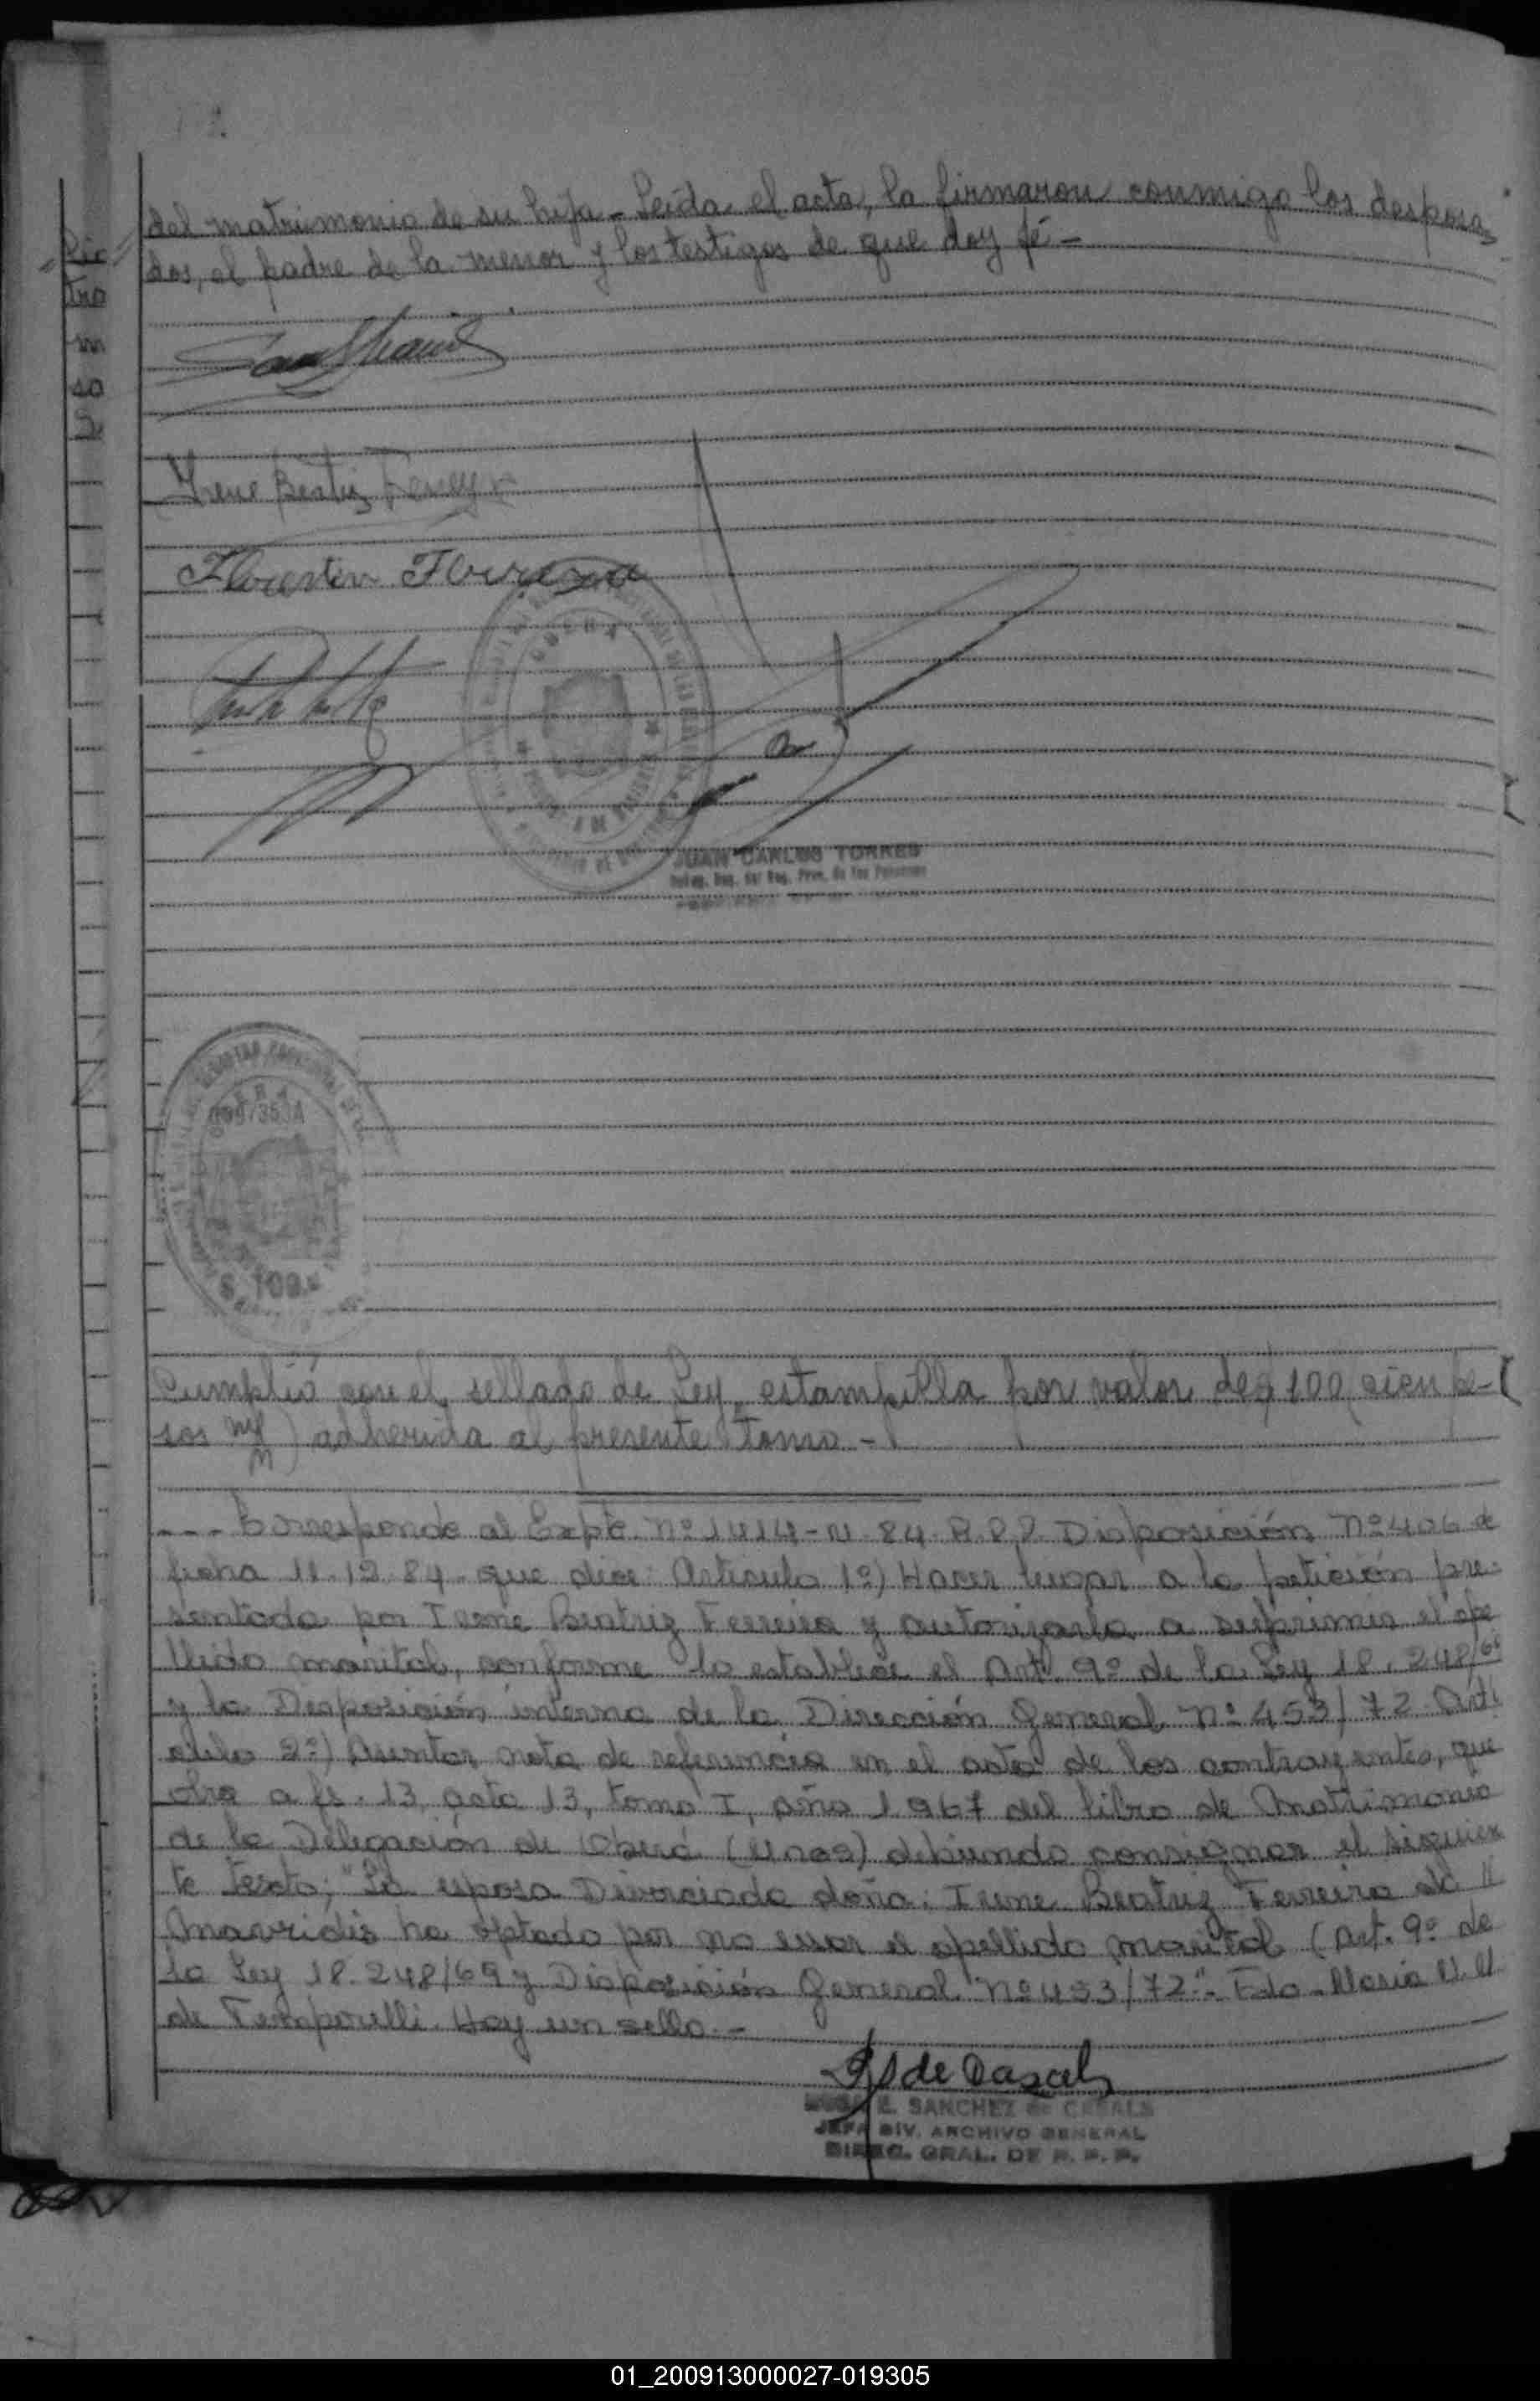 del matrimonio de su hija - Leída el acta, la firmaron conmigo los desposa-
dos, el padre de la menor y los testigos de que doy fé -
Irene Beatriz Ferreyra
Florentin Ferreira
OBERA
MISIONES
JUAN CARLOS TORRES
Deleg. Reg. del Reg. Prov. de las Personas
OBERA
097353A
$ 100.-
Cumplió con el sellado de Ley, estampilla por valor de $ 100 (cien pe-
sos m/n) adherida al presente tomo -
--- Corresponde al Expte. Nº 1414-N-84-R.P.P. Disposición Nº 406 de
fecha 11.12.84. que dice: Artículo 1º) Hacer lugar a la petición pre-
sentada por Irene Beatriz Ferreira y autorizarla a suprimir el ape
llido marital, conforme lo establece el Art. 9º de la Ley 18.248/69
y la Disposición interna de la Dirección General Nº 453/72. Artí
culo 2º) Asentar nota de referencia en el acta de los contrayentes, que
obra a fs. 13, acta 13, tomo I, año 1967 del libro de Matrimonio
de la Delegación de Oberá (Mnes) debiendo consignar el siguien
te texto; "La esposa Divorciada doña: Irene Beatriz Ferreira de
Mavridis ha optado por no usar el apellido marital (Art. 9º de
la Ley 18.248/69 y Disposición General Nº 453/72". Fdo. María
de Temporelli. Hay un sello. -
E. SANCHEZ de CASALS
JEFA DIV. ARCHIVO GENERAL
DIREC. GRAL. DE R. P. P.
01_200913000027-019305